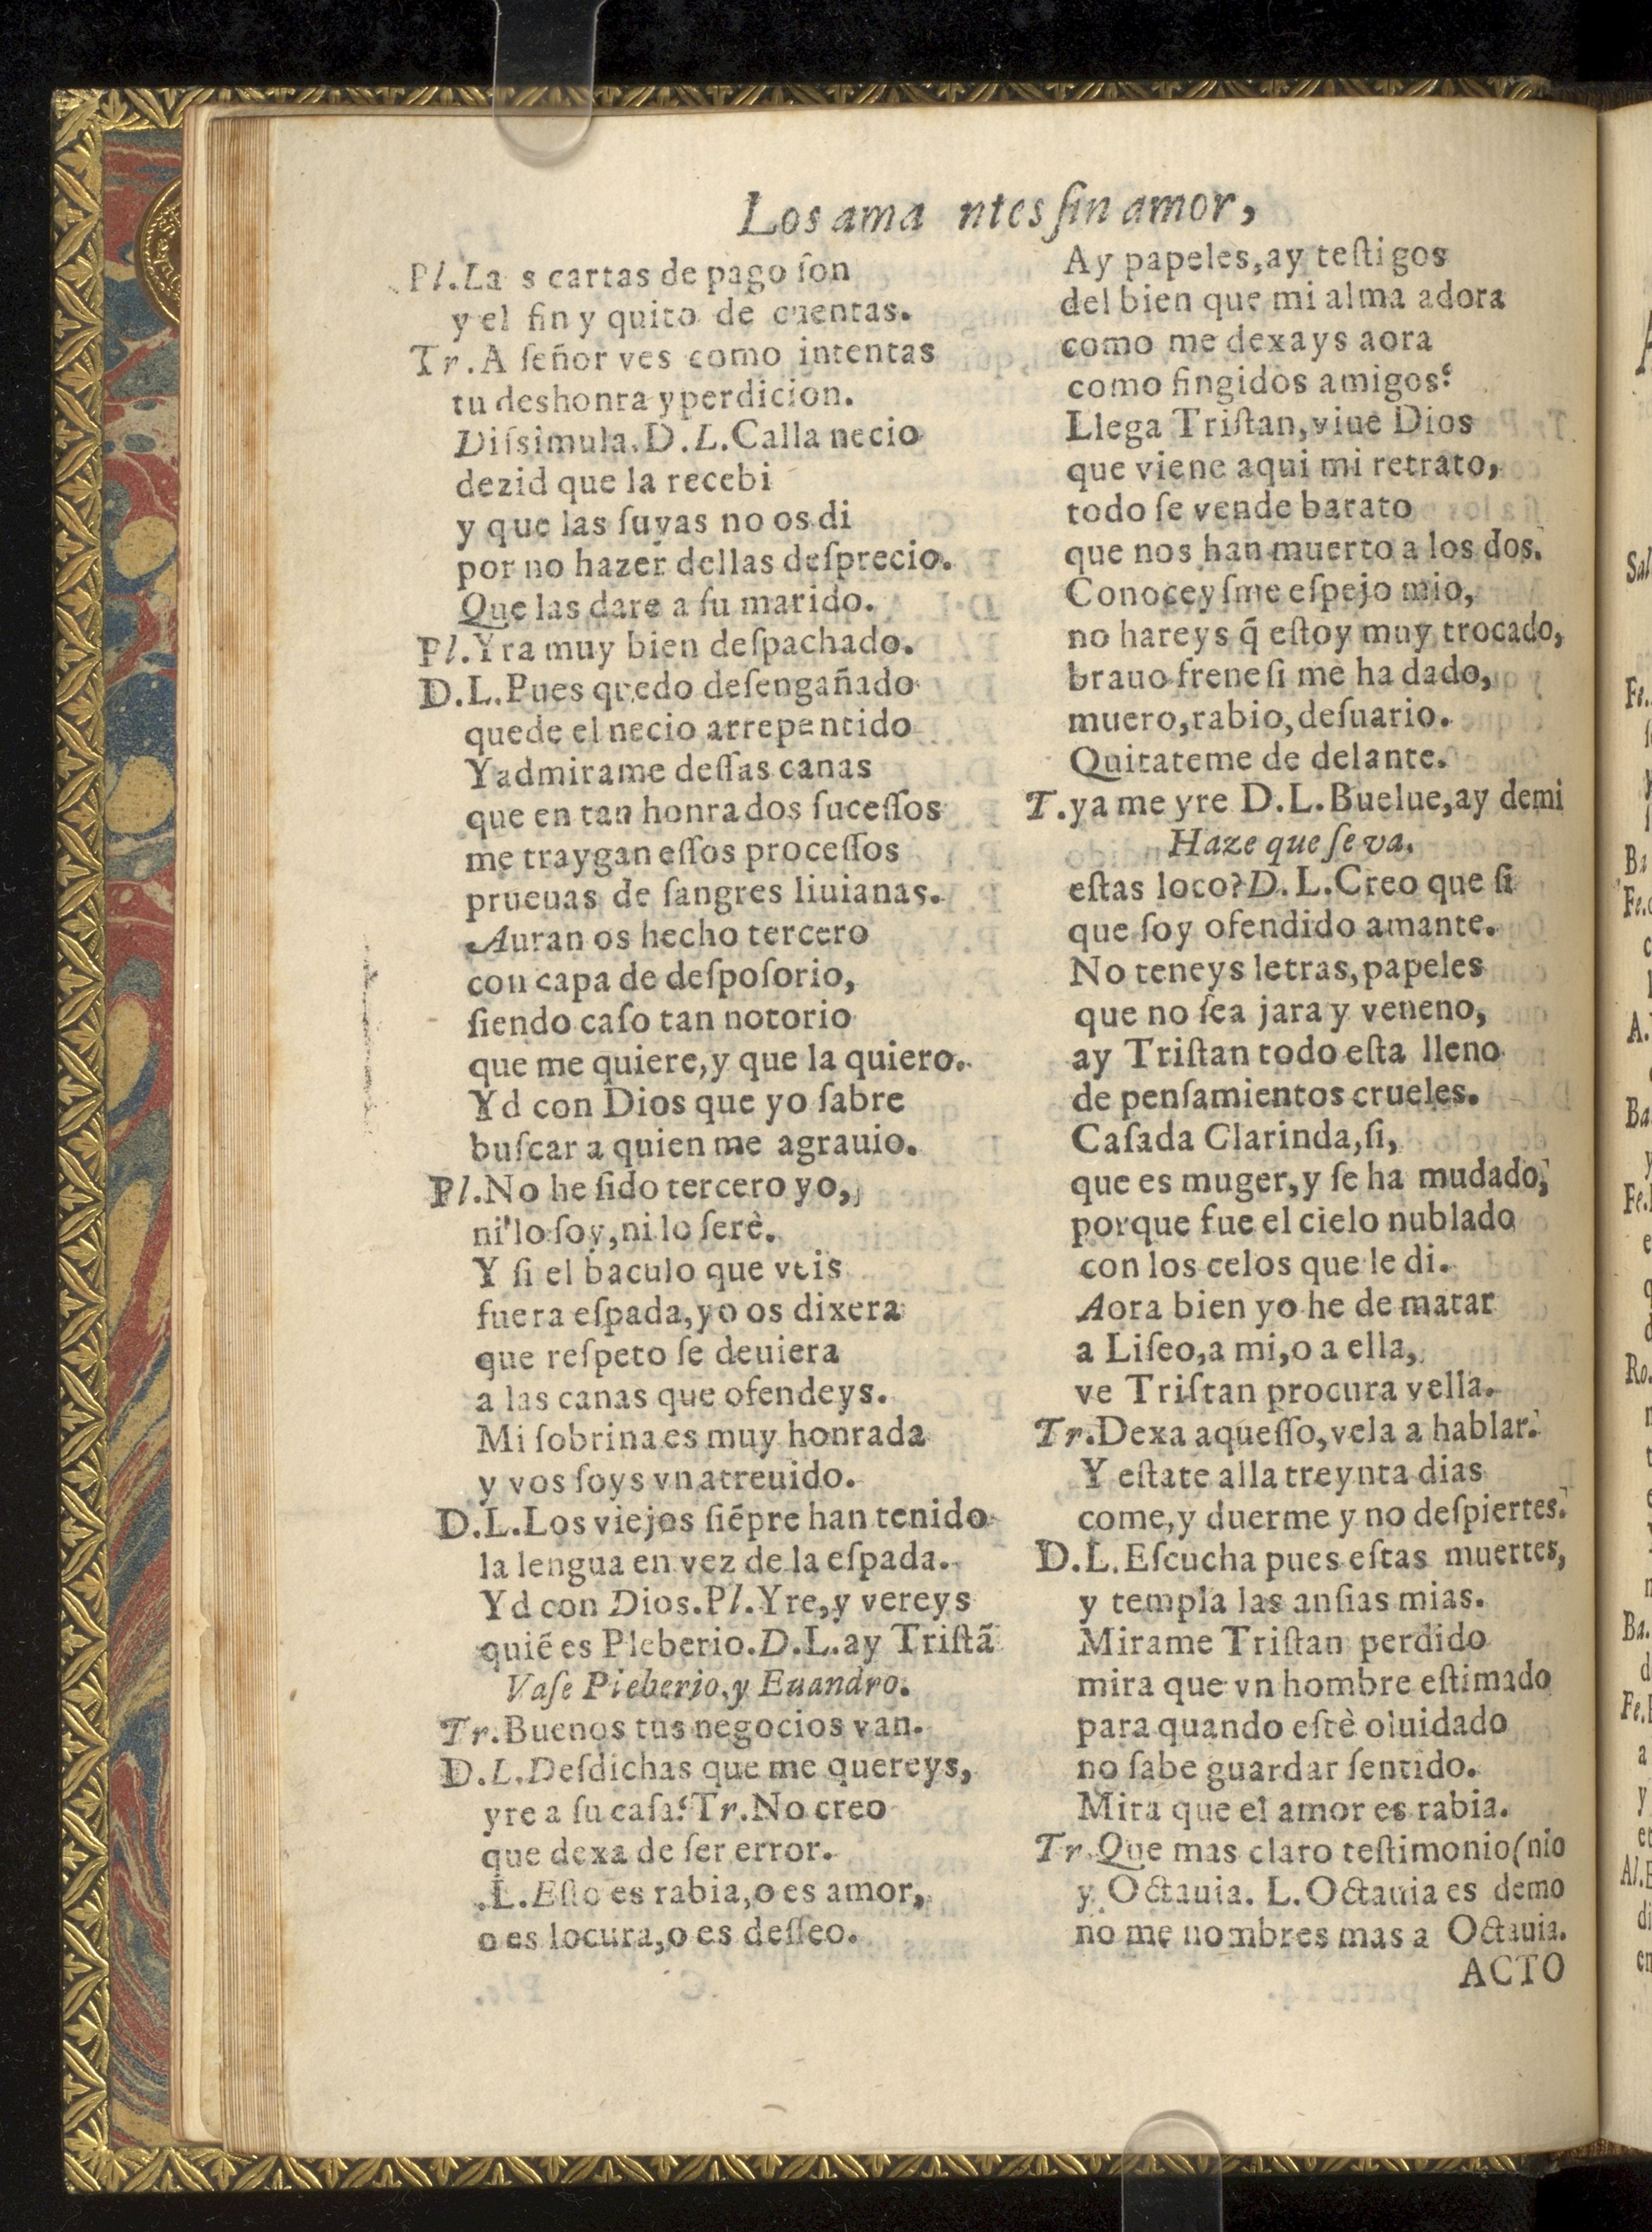 Los ama ntes ſin amor,
Pl.La s cartas de pago ſon
y el fin y quito de cuentas.
Tr.A ſeñor ves como intentas
tu deshonra y perdicion.
Diſsimula.D.L.Calla necio
dezid que la recebi
y que las ſuyas no os di
por no hazer dellas deſprecio.
Que las dare a ſu marido.
Pl.Yra muy bien deſpachado.
D.L.Pues quedo deſengañado
quede el necio arrepentido
Yadmirame deſſas canas
que en tan honrados ſuceſſos
me traygan eſſos proceſſos
prueuas de ſangres liuianas.
Auran os hecho tercero
con capa de deſpoſorio,
ſiendo caſo tan notorio
que me quiere,y que la quiero.
Yd con Dios que yo ſabre
buſcar a quien me agrauio.
Pl.No he ſido tercero yo,
ni lo ſoy,ni lo ſerè.
Y ſi el baculo que veis
fuera eſpada,yo os dixera
que reſpeto ſe deuiera
a las canas que ofendeys.
Mi ſobrina es muy honrada
y vos ſoys vn atreuido.
D.L.Los viejos ſiẽpre han tenido
la lengua en vez de la eſpada.
Yd con Dios.Pl.Yre,y vereys
quiẽ es Pleberio.D.L.ay Triſtã
Vaſe Pieberio,y Euandro.
Tr.Buenos tus negocios van.
D.L.Deſdichas que me quereys,
yre a ſu caſa?Tr.No creo
que dexa de ſer error.
.L.Eſto es rabia,o es amor,
o es locura,o es deſſeo.
Ay papeles,ay teſtigos
del bien que mi alma adora
como me dexays aora
como fingidos amigos?
Llega Triſtan,viue Dios
que viene aqui mi retrato,
todo ſe vende barato
que nos han muerto a los dos.
Conoceyſme eſpejo mio,
no hareys q̃ eſtoy muy trocado,
brauo freneſi me ha dado,
muero,rabio,deſuario.
Quitateme de delante.
T.ya me yre D.L.Buelue,ay demi
Haze que ſe va.
eſtas loco?D.L.Creo que ſi
que ſoy ofendido amante.
No teneys letras,papeles
que no ſea jara y veneno,
ay Triſtan todo eſta lleno
de penſamientos crueles.
Caſada Clarinda,ſi,
que es muger,y ſe ha mudado,
porque fue el cielo nublado
con los celos que le di.
Aora bien yo he de matar
a Liſeo,a mi,o a ella,
ve Triſtan procura vella.
Tr.Dexa aqueſſo,vela a hablar.
Y eſtate alla treynta dias
come,y duerme y no deſpiertes.
D.L.Eſcucha pues eſtas muertes,
y templa las anſias mias.
Mirame Triſtan perdido
mira que vn hombre eſtimado
para quando eſtè oluidado
no ſabe guardar ſentido.
Mira que el amor es rabia.
Tr.Que mas claro teſtimonio(nio
y Octauia. L.Octauia es demo
no me nombres mas a Octauia.
ACTO